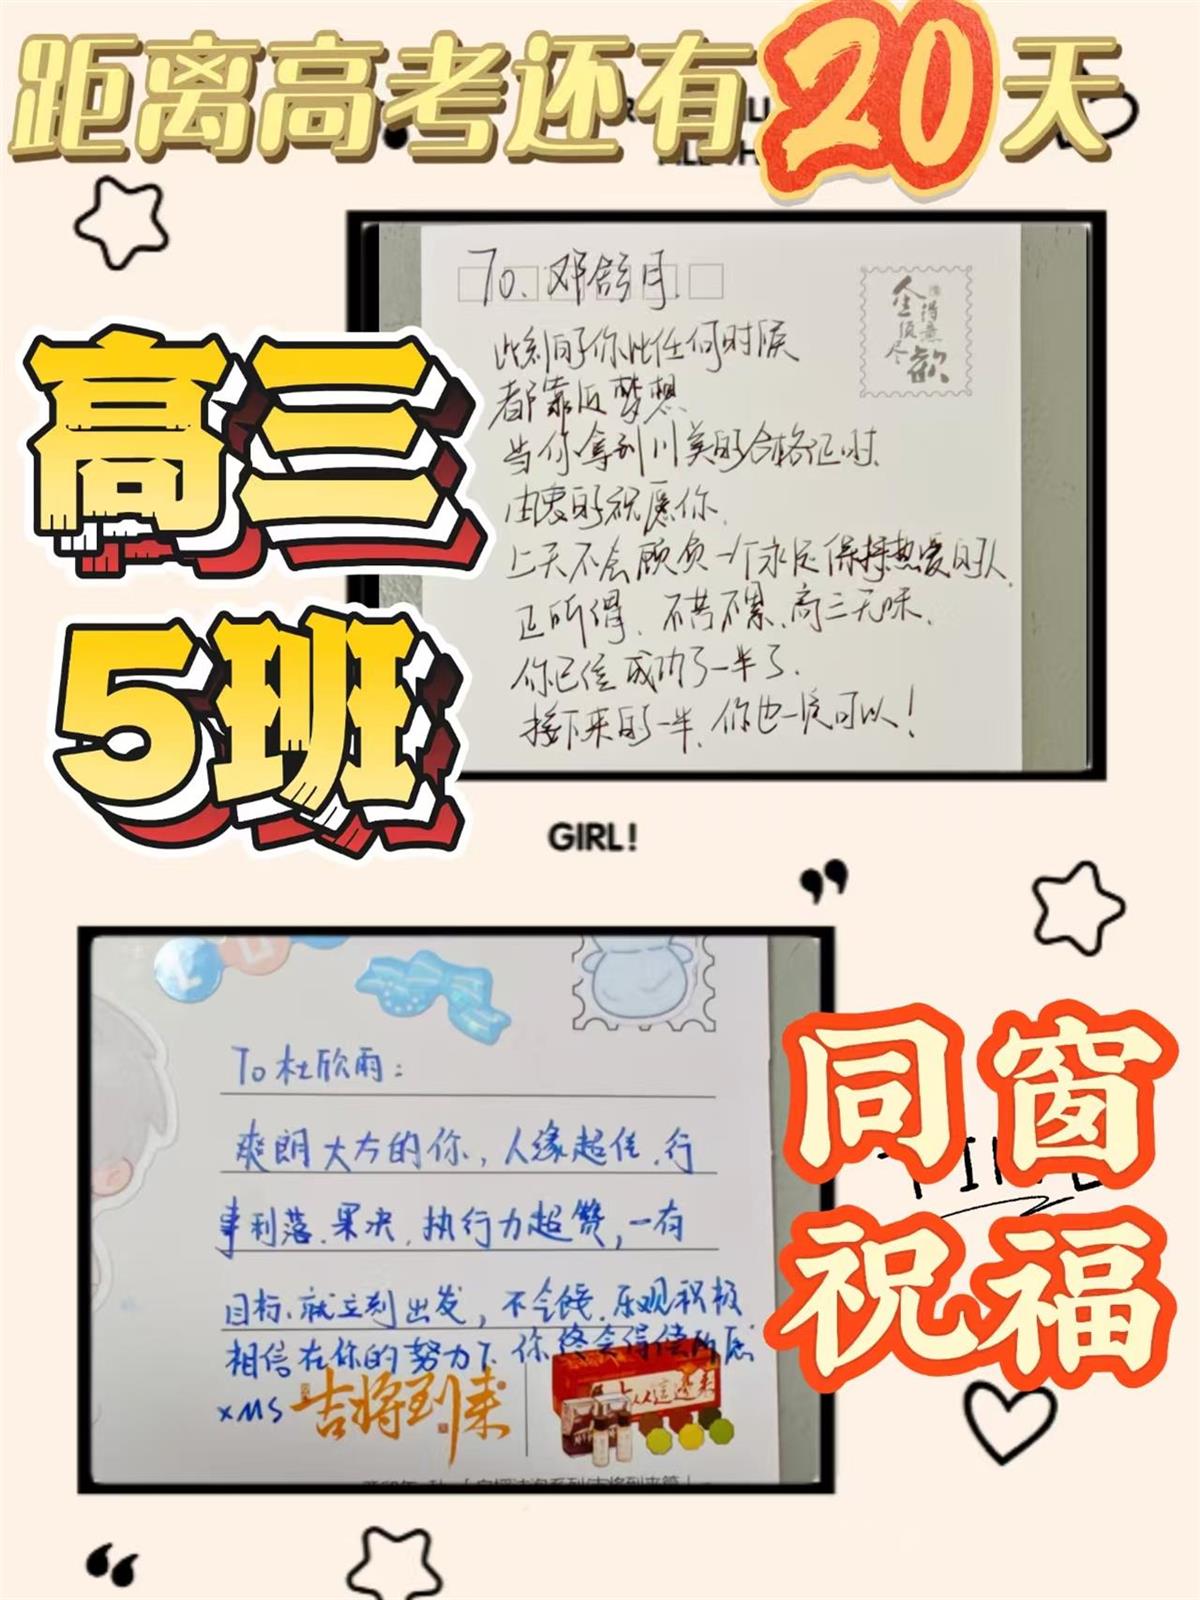 距离高考还有20天
高三
5班
To.邓舒月.
人生得意须尽欢
此刻的你比任何时候
都靠近梦想
当你拿到川美的合格证时.
由衷的祝愿你.
上天不会顾负一个永远保持热爱的人.
正所谓.不苦不累.高三无味.
你已经成功了一半了.
接下来的一半.你也一定可以!
GIRL!
To 杜欣雨:
爽朗大方的你,人缘超佳.行
事利落.果决.执行力超赞,一有
目标.就立刻出发,不会怂.乐观积极
相信在你的努力下.你终会得偿所愿
XMS
吉将到来
同窗
祝福